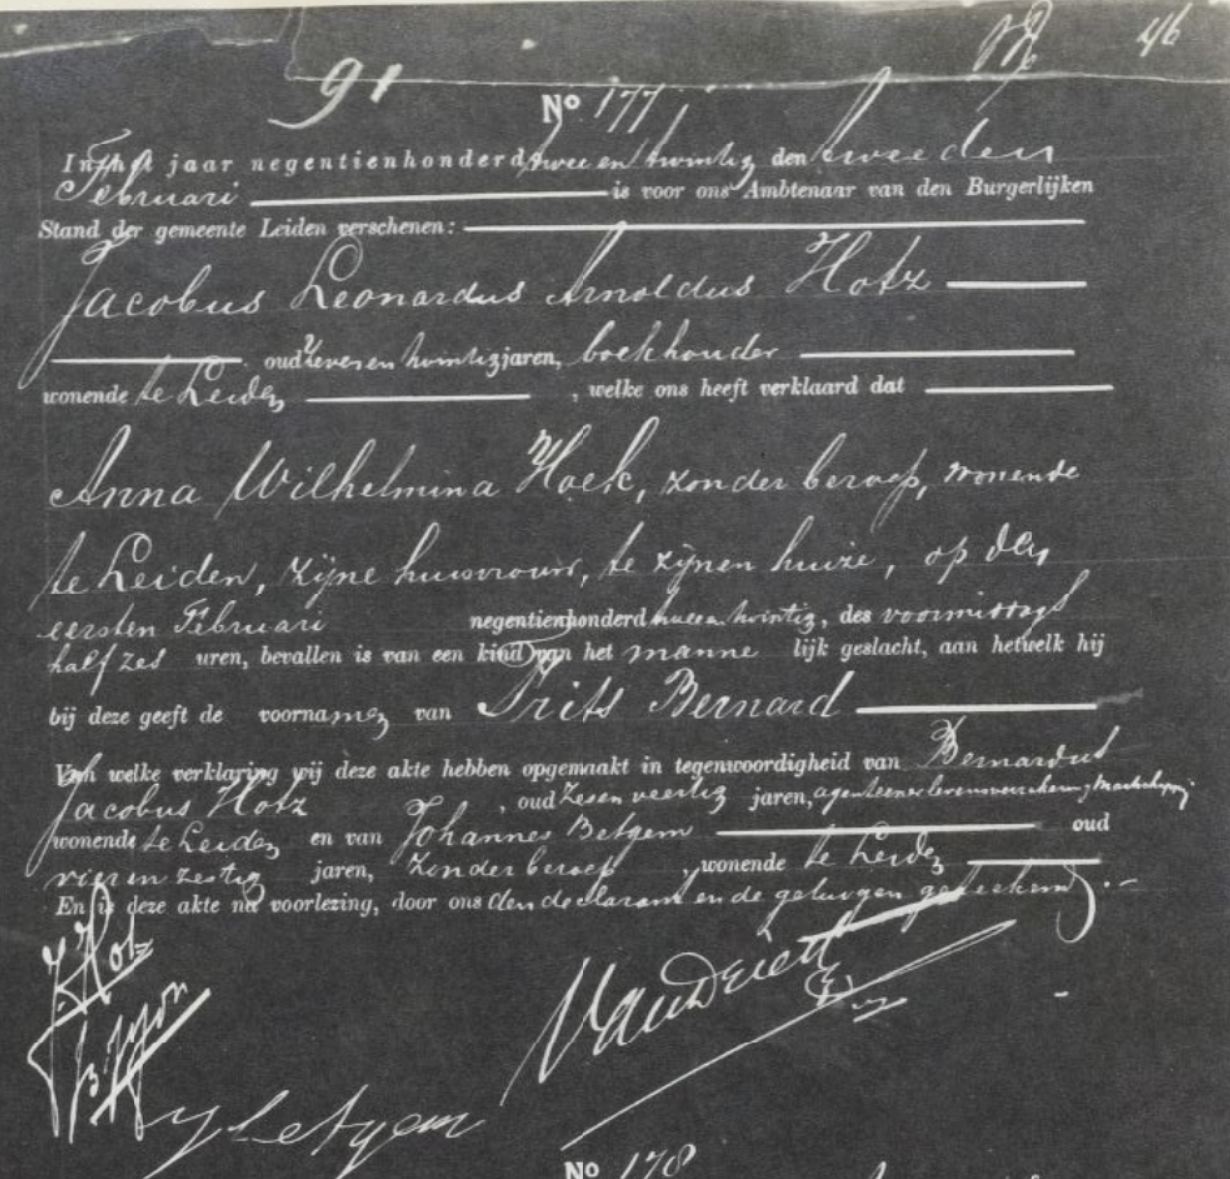 91
46
No 177
In het jaar negentienhonderd twee en twintig den tweeden
Februari is voor ons Ambtenaar van den Burgerlijken
Stand der gemeente Leiden verschenen:
Jacobus Leonardus Arnoldus Hotz
oud zeven en twintig jaren, boekhouder
wonende te Leiden, welke ons heeft verklaard dat
Anna Wilhelmina Hoek, zonder beroep, wonende
te Leiden, zijne huisvrouw, te zijnen huize, op den
eersten Februari negentienhonderd twee en twintig, des voormiddags
half zes uren, bevallen is van een kind van het manne lijk geslacht, aan hetwelk hij
bij deze geeft de voornamen van Frits Bernard
Van welke verklaring wij deze akte hebben opgemaakt in tegenwoordigheid van Bernardus
Jacobus Hotz, oud zes en veertig jaren, agent eener levensverzekering Maatschappij
wonende te Leiden en van Johannes Betgem oud
vier en zestig jaren, zonder beroep, wonende te Leiden
En is deze akte na voorlezing, door ons den declarant en de getuigen geteekend.
Hotz
J Betgem
No 178